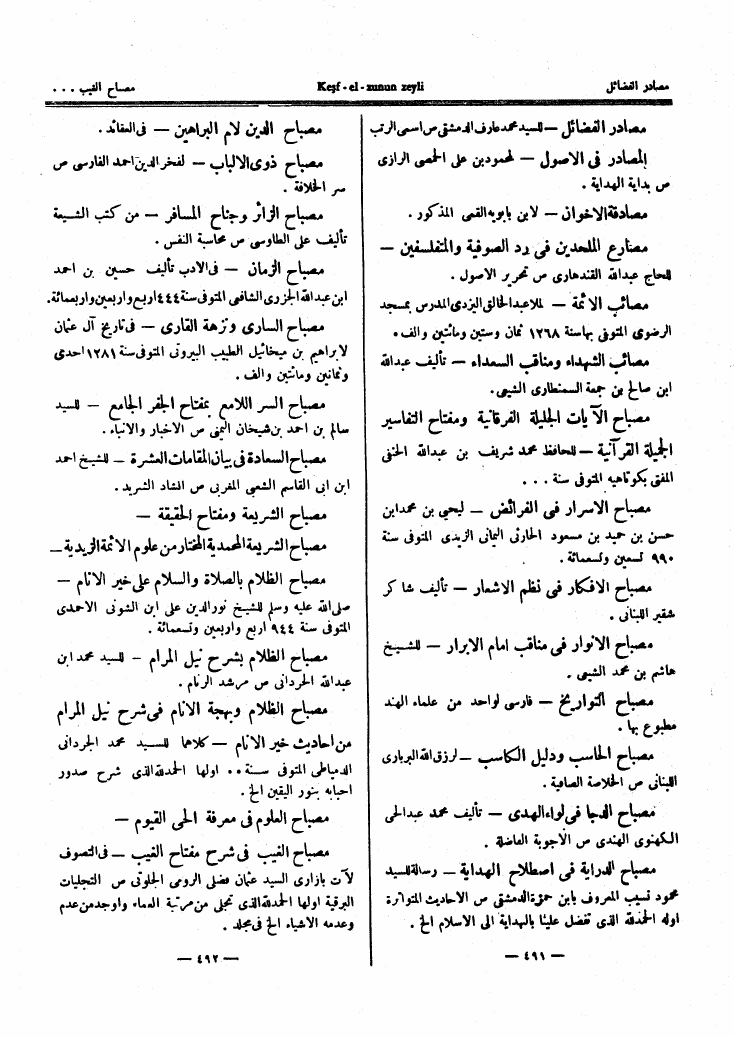 مصادر الفضائل
Keşf - el - zunun zeyli
مصباح الغيب . . .
مصادر الفضائل — للسيد محمد عارف الدمشقى ص اسمى الرتب
المصادر فى الاصول — لمحمود بن على الحمصى الرازى
ص بداية الهداية .
مصادقة الاخوان — لابن بابويه القمى المذكور .
مصارع الملحدين فى رد الصوفية والمتفلسفين —
للحاج عبدالله القندهارى ص تحرير الاصول .
مصائب الائمة — لملا عبدالخالق اليزدى المدرس بمسجد
الرضوى المتوفى بها سنة ١٢٦٨ ثمان وستين ومائتين والف .
مصائب الشهداء ومناقب السعداء — تأليف عبدالله
ابن صالح بن جمعة السمنطارى الشيعى .
مصباح الآيات الجليلة الفرقانية ومفتاح التفاسير
الجميلة القرآنية — للحافظ محمد شريف بن عبدالله الحنفى
المفتى بكوتاهيه المتوفى سنة . . .
مصباح الاسرار فى الفرائض — ليحيى بن محمد ابن
حسن بن حميد بن مسعود الحارثى اليمانى الزيدى المتوفى سنة
٩٩٠ تسعين وتسعمائة .
مصباح الافكار فى نظم الاشعار — تأليف شاكر
شقير اللبنانى .
مصباح الانوار فى مناقب امام الابرار — للشيخ
هاشم بن محمد الشيعى .
مصباح التواريخ — فارسى لواحد من علماء الهند
مطبوع بها .
مصباح الحاسب ودليل الكاسب — لرزق الله البربارى
اللبنانى ص الخلاصة الصافية .
مصباح الدجا فى لواء الهدى — تأليف محمد عبدالحى
الكهنوى الهندى ص الاجوبة الفاضلة .
مصباح الدراية فى اصطلاح الهداية — رسالة للسيد
محمود نسيب المعروف بابن حمزة الدمشقى ص الاحاديث المتواترة
اوله الحمدلله الذى تفضل علينا بالهداية الى الاسلام الخ .
— ٤٩١ —
مصباح الدين لام البراهين — فى العقائد .
مصباح ذوى الالباب — لفخر الدين احمد الفارسى ص
سر الخلافة .
مصباح الزائر وجناح المسافر — من كتب الشيعة
تأليف على الطاوسى ص محاسبة النفس .
مصباح الزمان — فى الادب تأليف حسين بن احمد
ابن عبدالله الجزرى الشافعى المتوفى سنة ٤٤٤ اربع واربعين واربعمائة .
مصباح السارى ونزهة القارى — فى تاريخ آل عثمان
لابراهيم بن ميخائيل الطبيب البيروتى المتوفى سنة ١٢٨١ احدى
وثمانين ومائتين والف .
مصباح السر اللامع بمفتاح الجفر الجامع — للسيد
سالم بن احمد بن شيخان اليمنى ص الاخبار والانباء .
مصباح السعادة فى بيان المقامات العشرة — للشيخ احمد
ابن ابى القاسم الشعبى المغربى ص الشاد الشريد .
مصباح الشريعة ومفتاح الحقيقة —
مصباح الشريعة المحمدية المختار من علوم الائمة الزيدية —
مصباح الظلام بالصلاة والسلام على خير الانام —
صلى الله عليه وسلم للشيخ نور الدين على ابن الشونى الاحمدى
المتوفى سنة ٩٤٤ اربع واربعين وتسعمائة .
مصباح الظلام بشرح نيل المرام — للسيد محمد ابن
عبدالله الجردانى ص مرشد الانام .
مصباح الظلام وبهجة الانام فى شرح نيل المرام
من احاديث خير الانام — كلاهما للسيد محمد الجردانى
الدمياطى المتوفى سنة . . اولها الحمدلله الذى شرح صدور
احبابه بنور اليقين الخ .
مصباح العلوم فى معرفة الحى القيوم —
مصباح الغيب فى شرح مفتاح الغيب — فى التصوف
لآت بازارى السيد عثمان فضلى الرومى الجلوتى ص التجليات
البرقية اولها الحمدلله الذى تجلى من مرتبة العماء واوجد من عدم
وعدمه الاشياء الخ فى مجلد .
— ٤٩٢ —